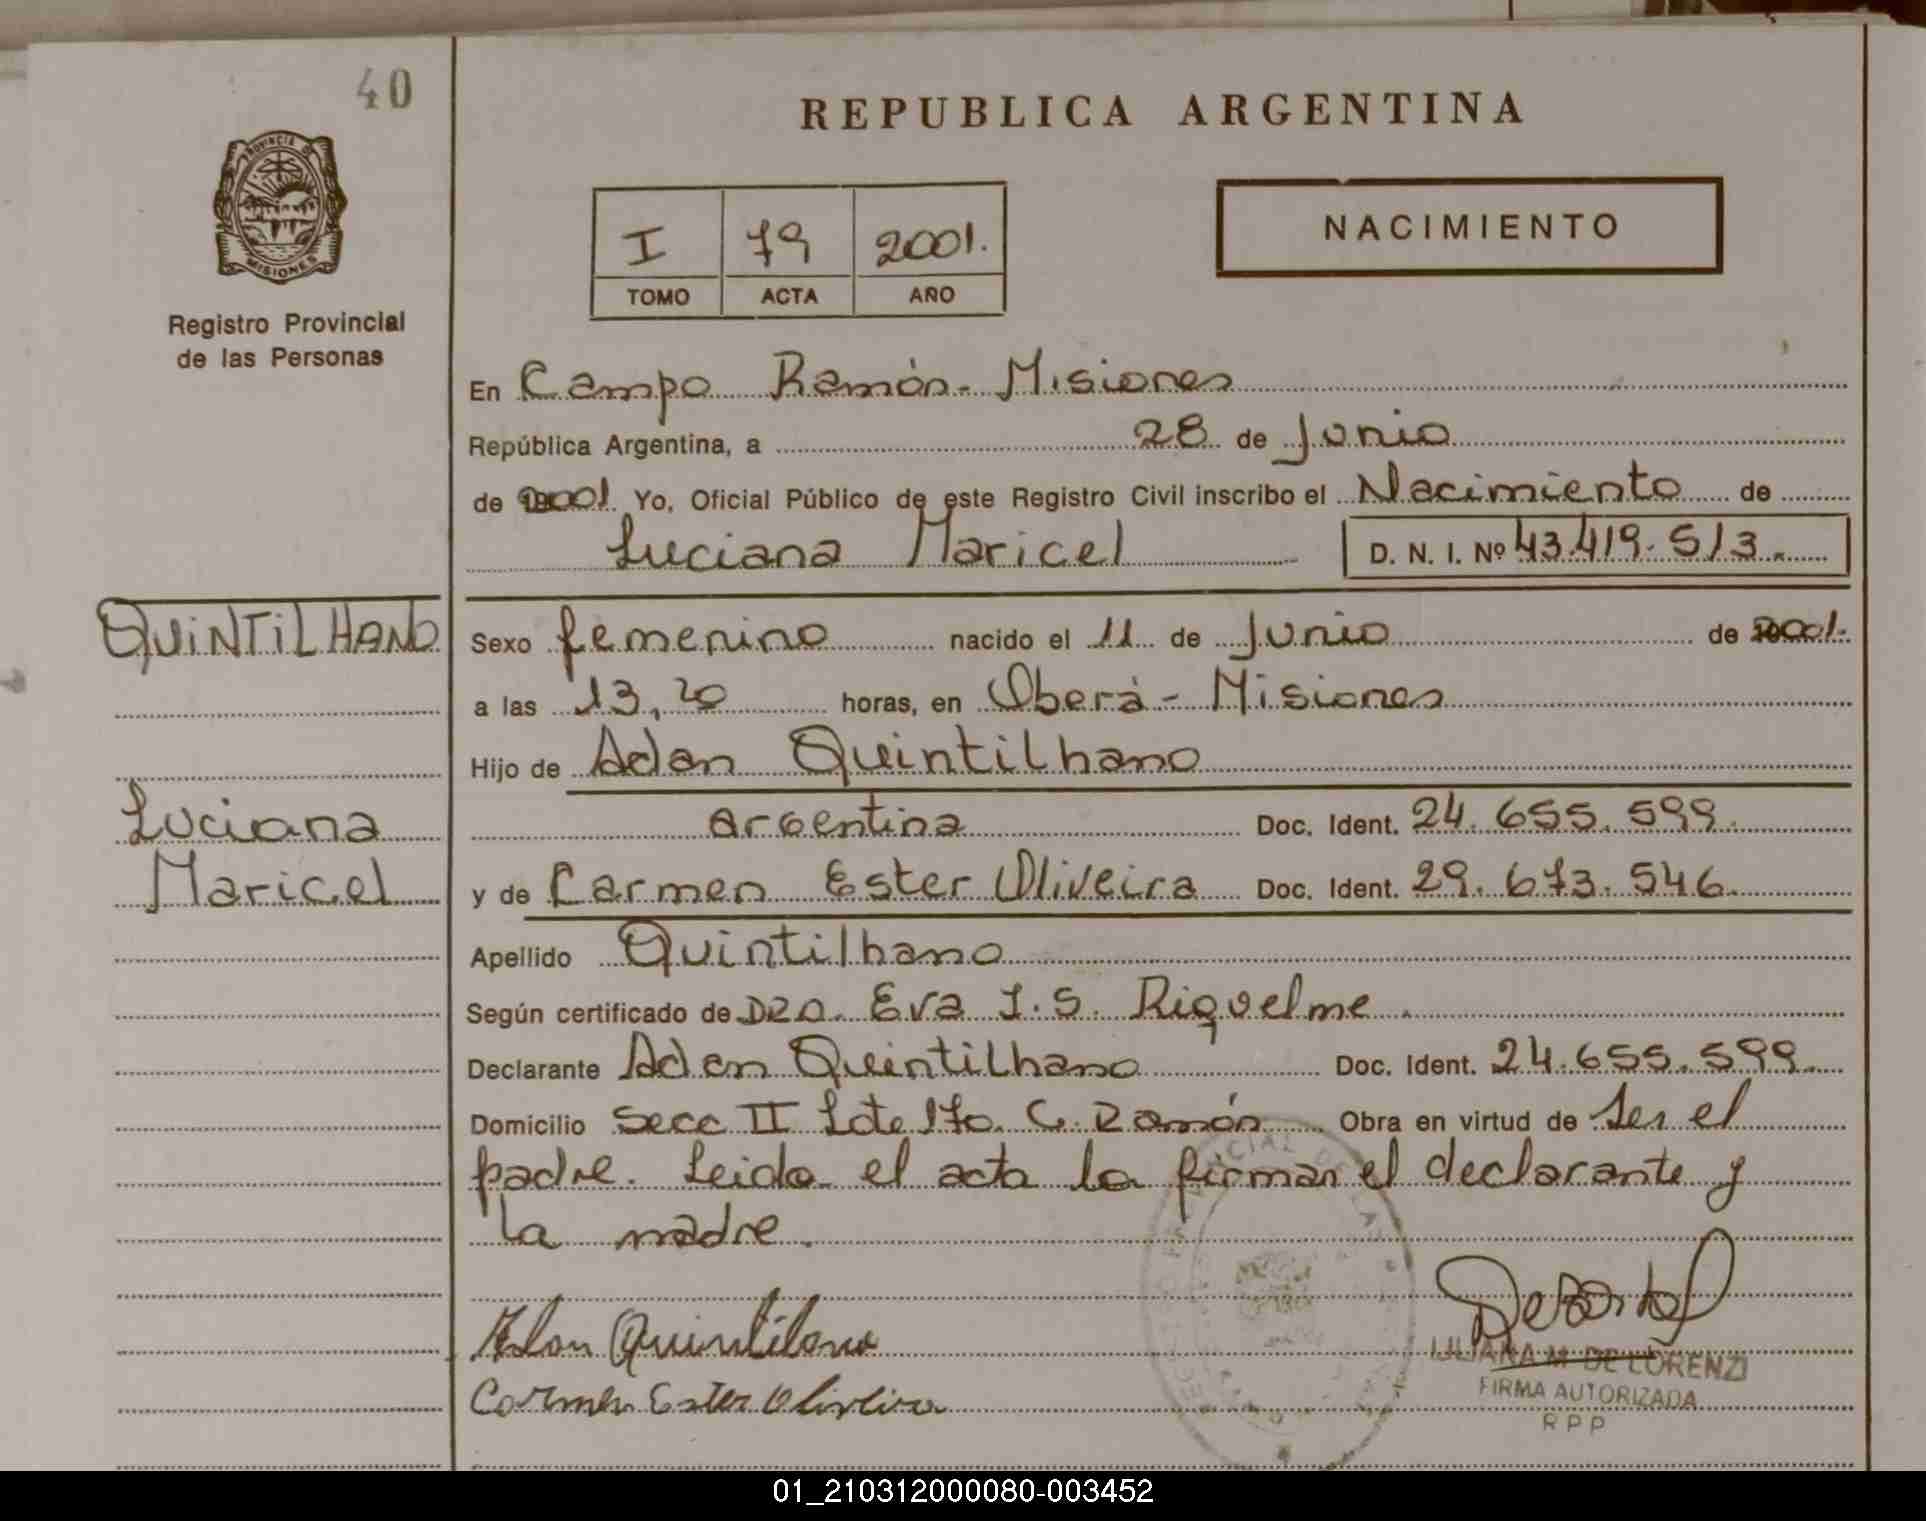 40
REPUBLICA ARGENTINA
PROVINCIA DE
MISIONES
Registro Provincial
de las Personas
I 79 2001.
TOMO ACTA AÑO
NACIMIENTO
En Campo Ramón - Misiones
República Argentina, a 28 de Junio
de 2001 Yo, Oficial Público de este Registro Civil inscribo el Nacimiento de
Luciana Maricel D. N. I. Nº 43.419.513.
QUINTILHANO
Sexo femenino nacido el 11 de Junio de 2001.
a las 13,20 horas, en Oberá - Misiones
Hijo de Adan Quintilhano
Luciana
argentina Doc. Ident. 24.655.599.
Maricel
y de Carmen Ester Oliveira Doc. Ident. 29.673.546.
Apellido Quintilhano
Según certificado de Dra. Eva I. S. Riquelme.
Declarante Adan Quintilhano Doc. Ident. 24.655.599.
Domicilio Secc II Lote 170. C. Ramón Obra en virtud de ser el
padre. Leida el acta la firman el declarante y
la madre.
Adan Quintilano
Carmen Ester Oliveira
LILIANA M. DE LORENZI
FIRMA AUTORIZADA
R P P
01_210312000080-003452